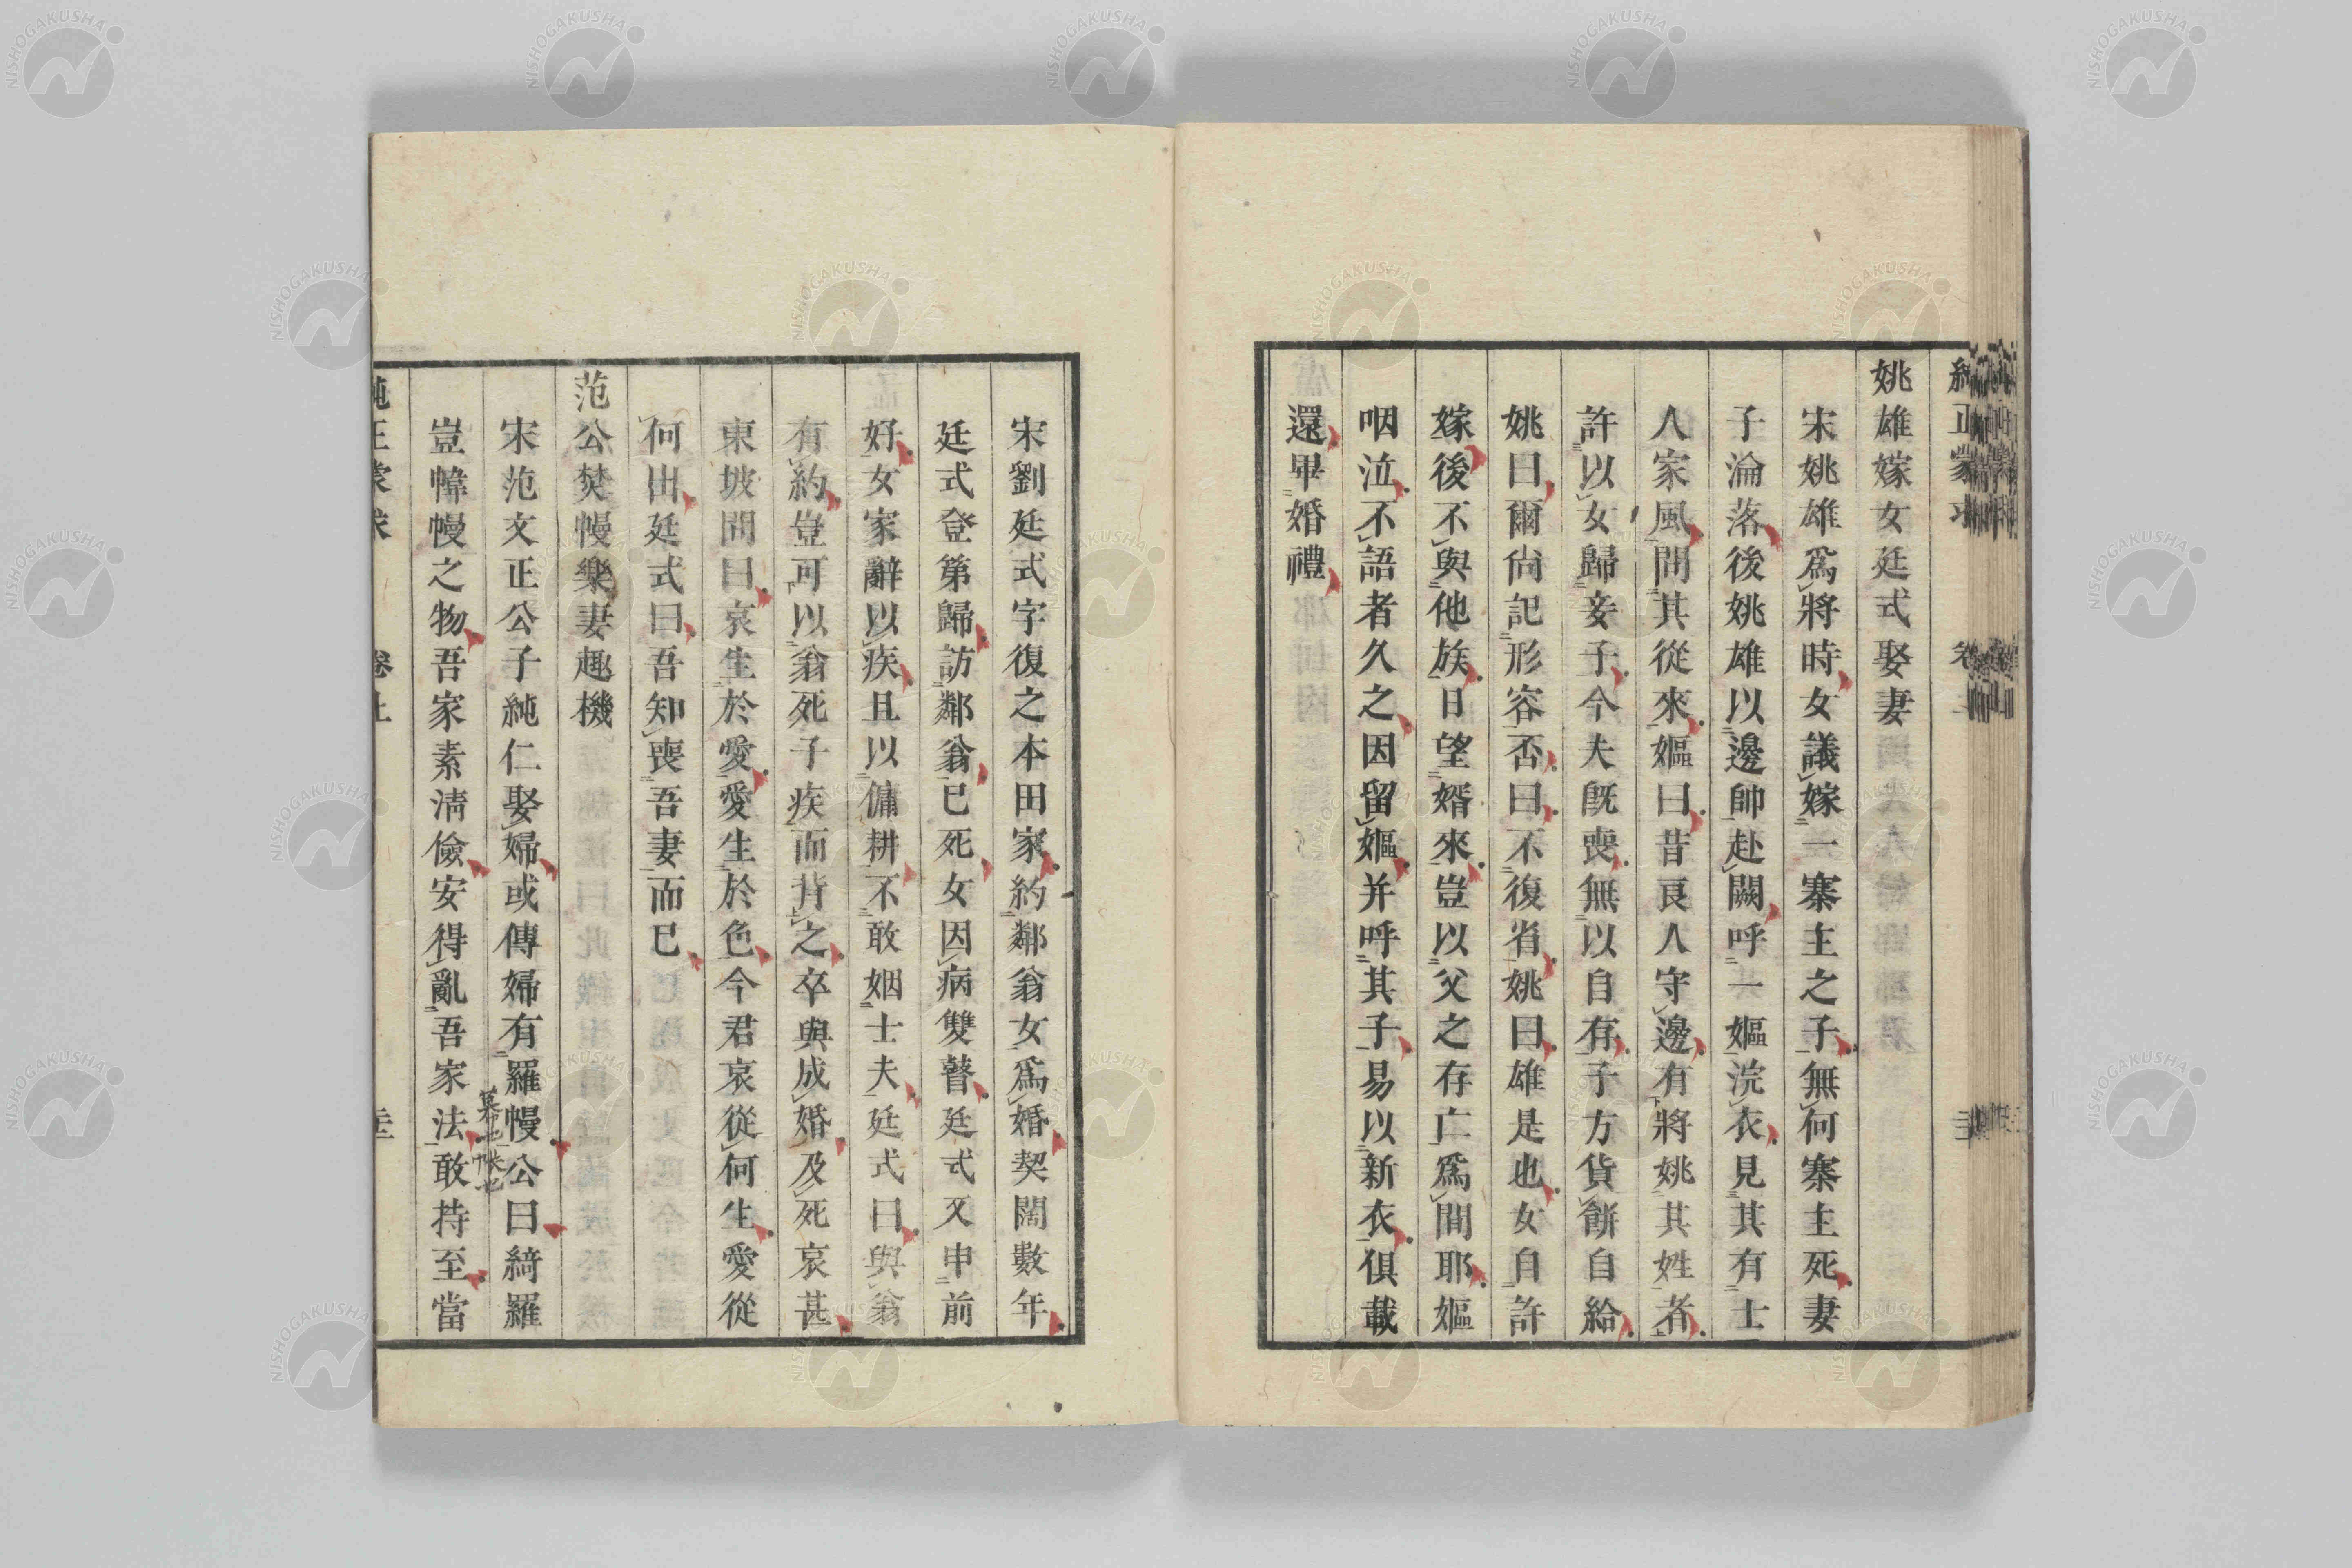 姚雄嫁女廷式娶妻
宋姚雄爲將時女議嫁一寨主之子無何寨主死妻
子淪落後姚雄以邊帥赴闕呼一嫗浣衣見其有士
人家風問其從來嫗曰昔良人守邊有將姚其姓者
許以女歸妾子今夫既喪無以自有子方貨餠自給
姚曰爾尙記形容否曰不復省姚曰雄是也女自許
嫁後不與他族日望婿來豈以父之存亡爲間耶嫗
咽泣不語者久之因留嫗并呼其子易以新衣俱載
還畢婚禮
宋劉廷式字復之本田家約鄰翁女爲婚契闊數年
廷式登第歸訪鄰翁已死女因病雙瞽廷式又申前
好女家辭以疾且以傭耕不敢姻士夫廷式曰與翁
有約豈可以翁死子疾而背之卒與成婚及死哀甚
東坡問曰哀生於愛愛生於色今君哀從何生愛從
何出廷式曰吾知喪吾妻而已
范公焚幔樂妻趣機
宋范文正公子純仁娶婦或傳婦有羅幔公曰綺羅
豈幃幔之物吾家素淸儉安得亂吾家法敢持至當
純正蒙求 卷上
NISHOGAKUSHA